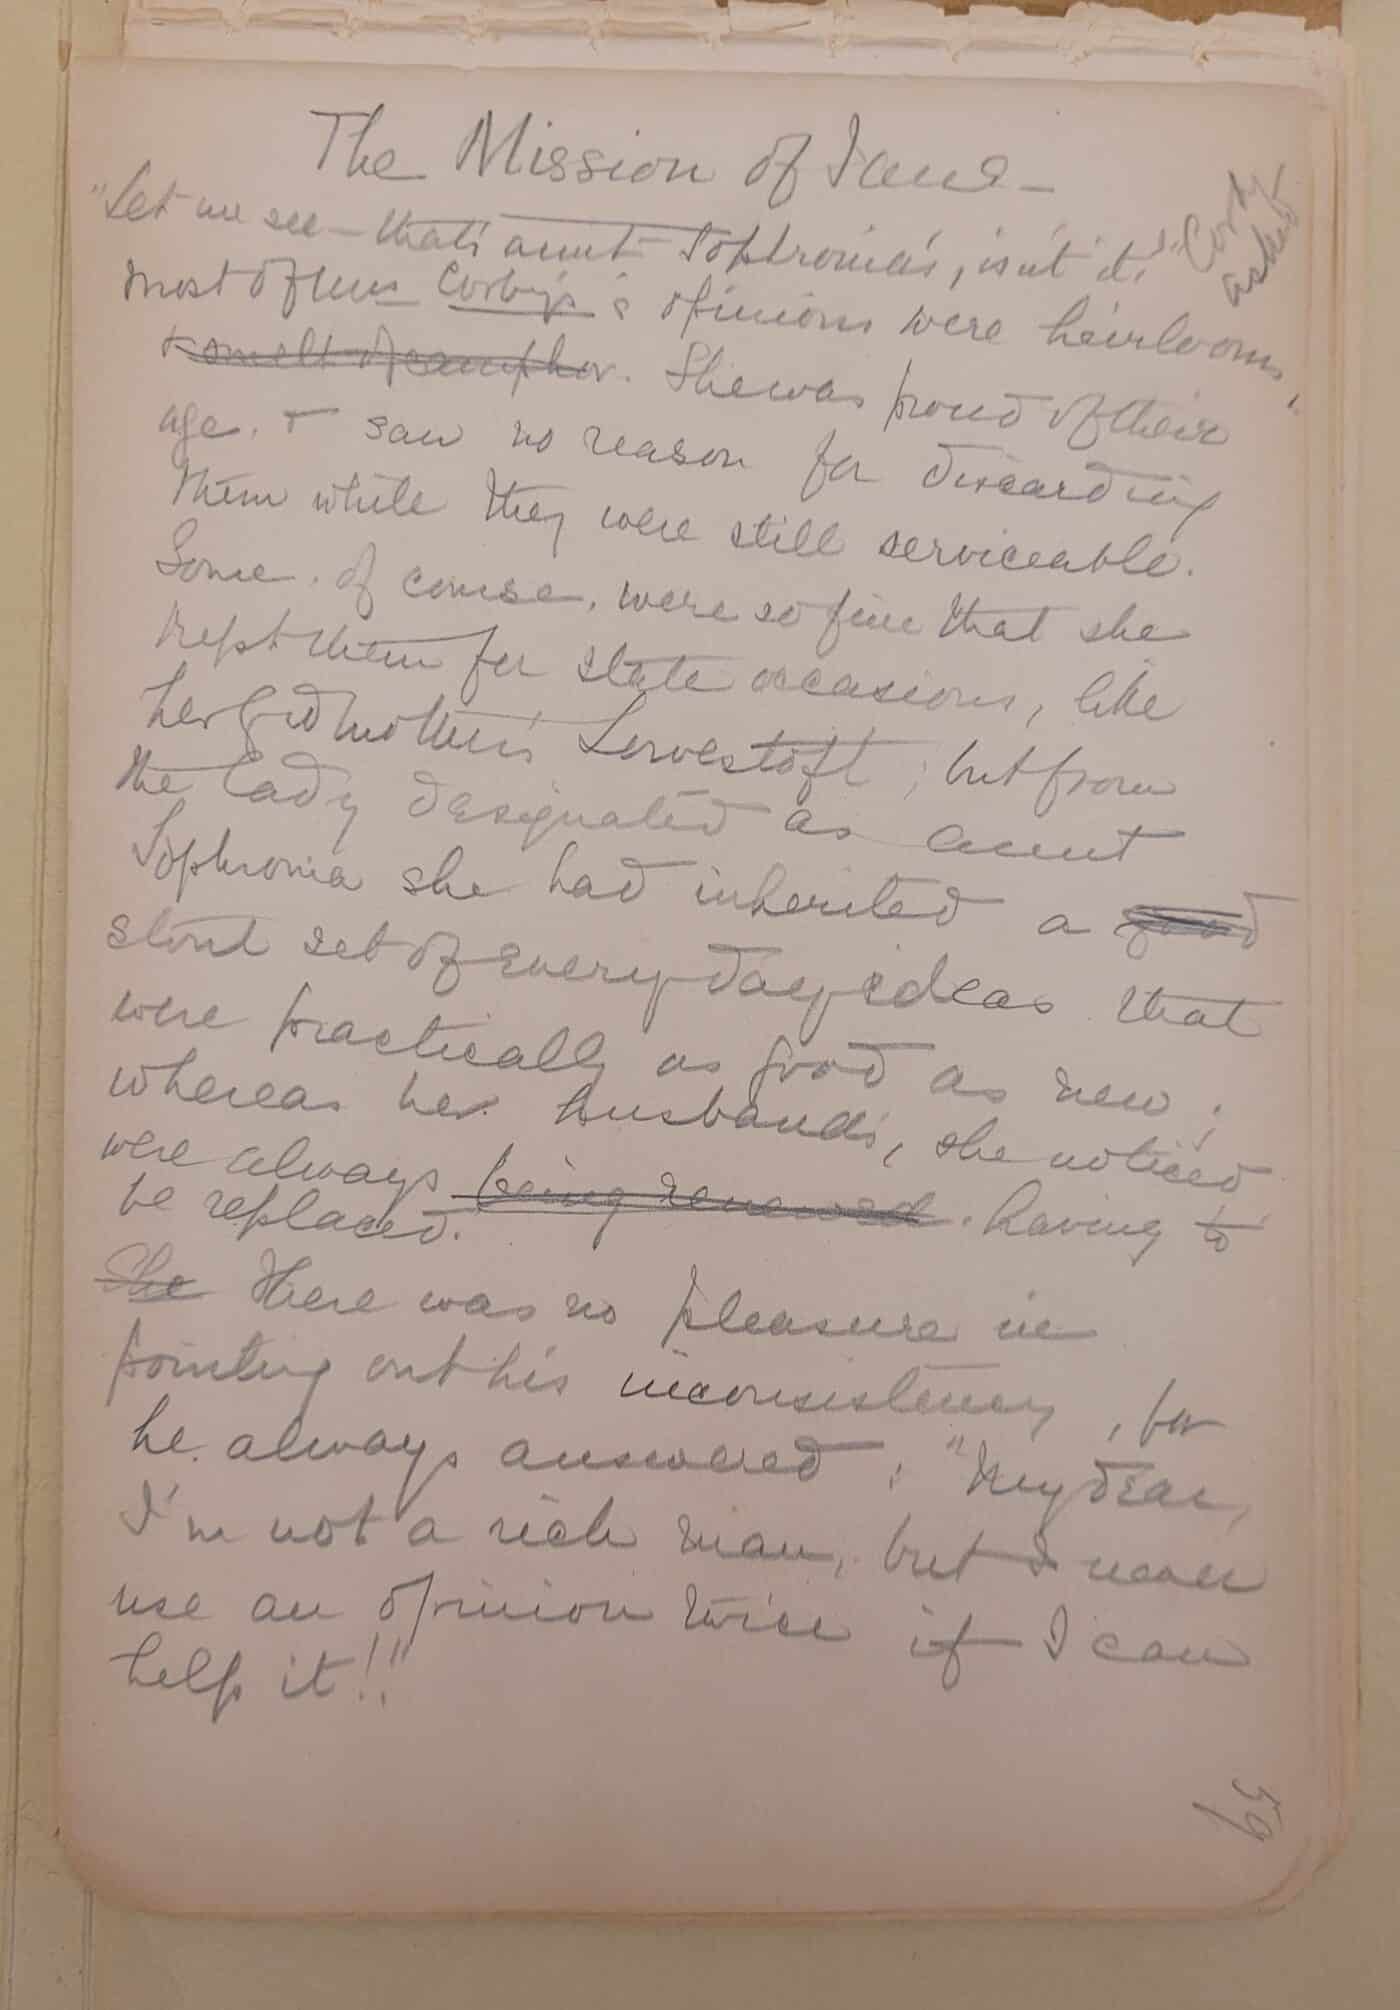 The Mission of Jane—
"Let me see—that's aunt Sophronia's, isn't it?" Corby asked
Most of Mrs Corby's opinions were heirlooms,
& smelt of camphor. She was proud of their
age, & saw no reason for discarding
them while they were still serviceable.
Some, of course, were so fine that she
kept them for state occasions, like
her Godmother's Lowestoft; but from
the lady designated as aunt
Sophronia she had inherited a good
stout set of every-day ideas that
were practically as good as new;
whereas her husband's, she noticed
were always being renewed. having to
be replaced.
She There was no pleasure in
pointing out his inconsistency, for
he always answered: "My dear,
I'm not a rich man, but I never
use an opinion twice if I can
help it!!"